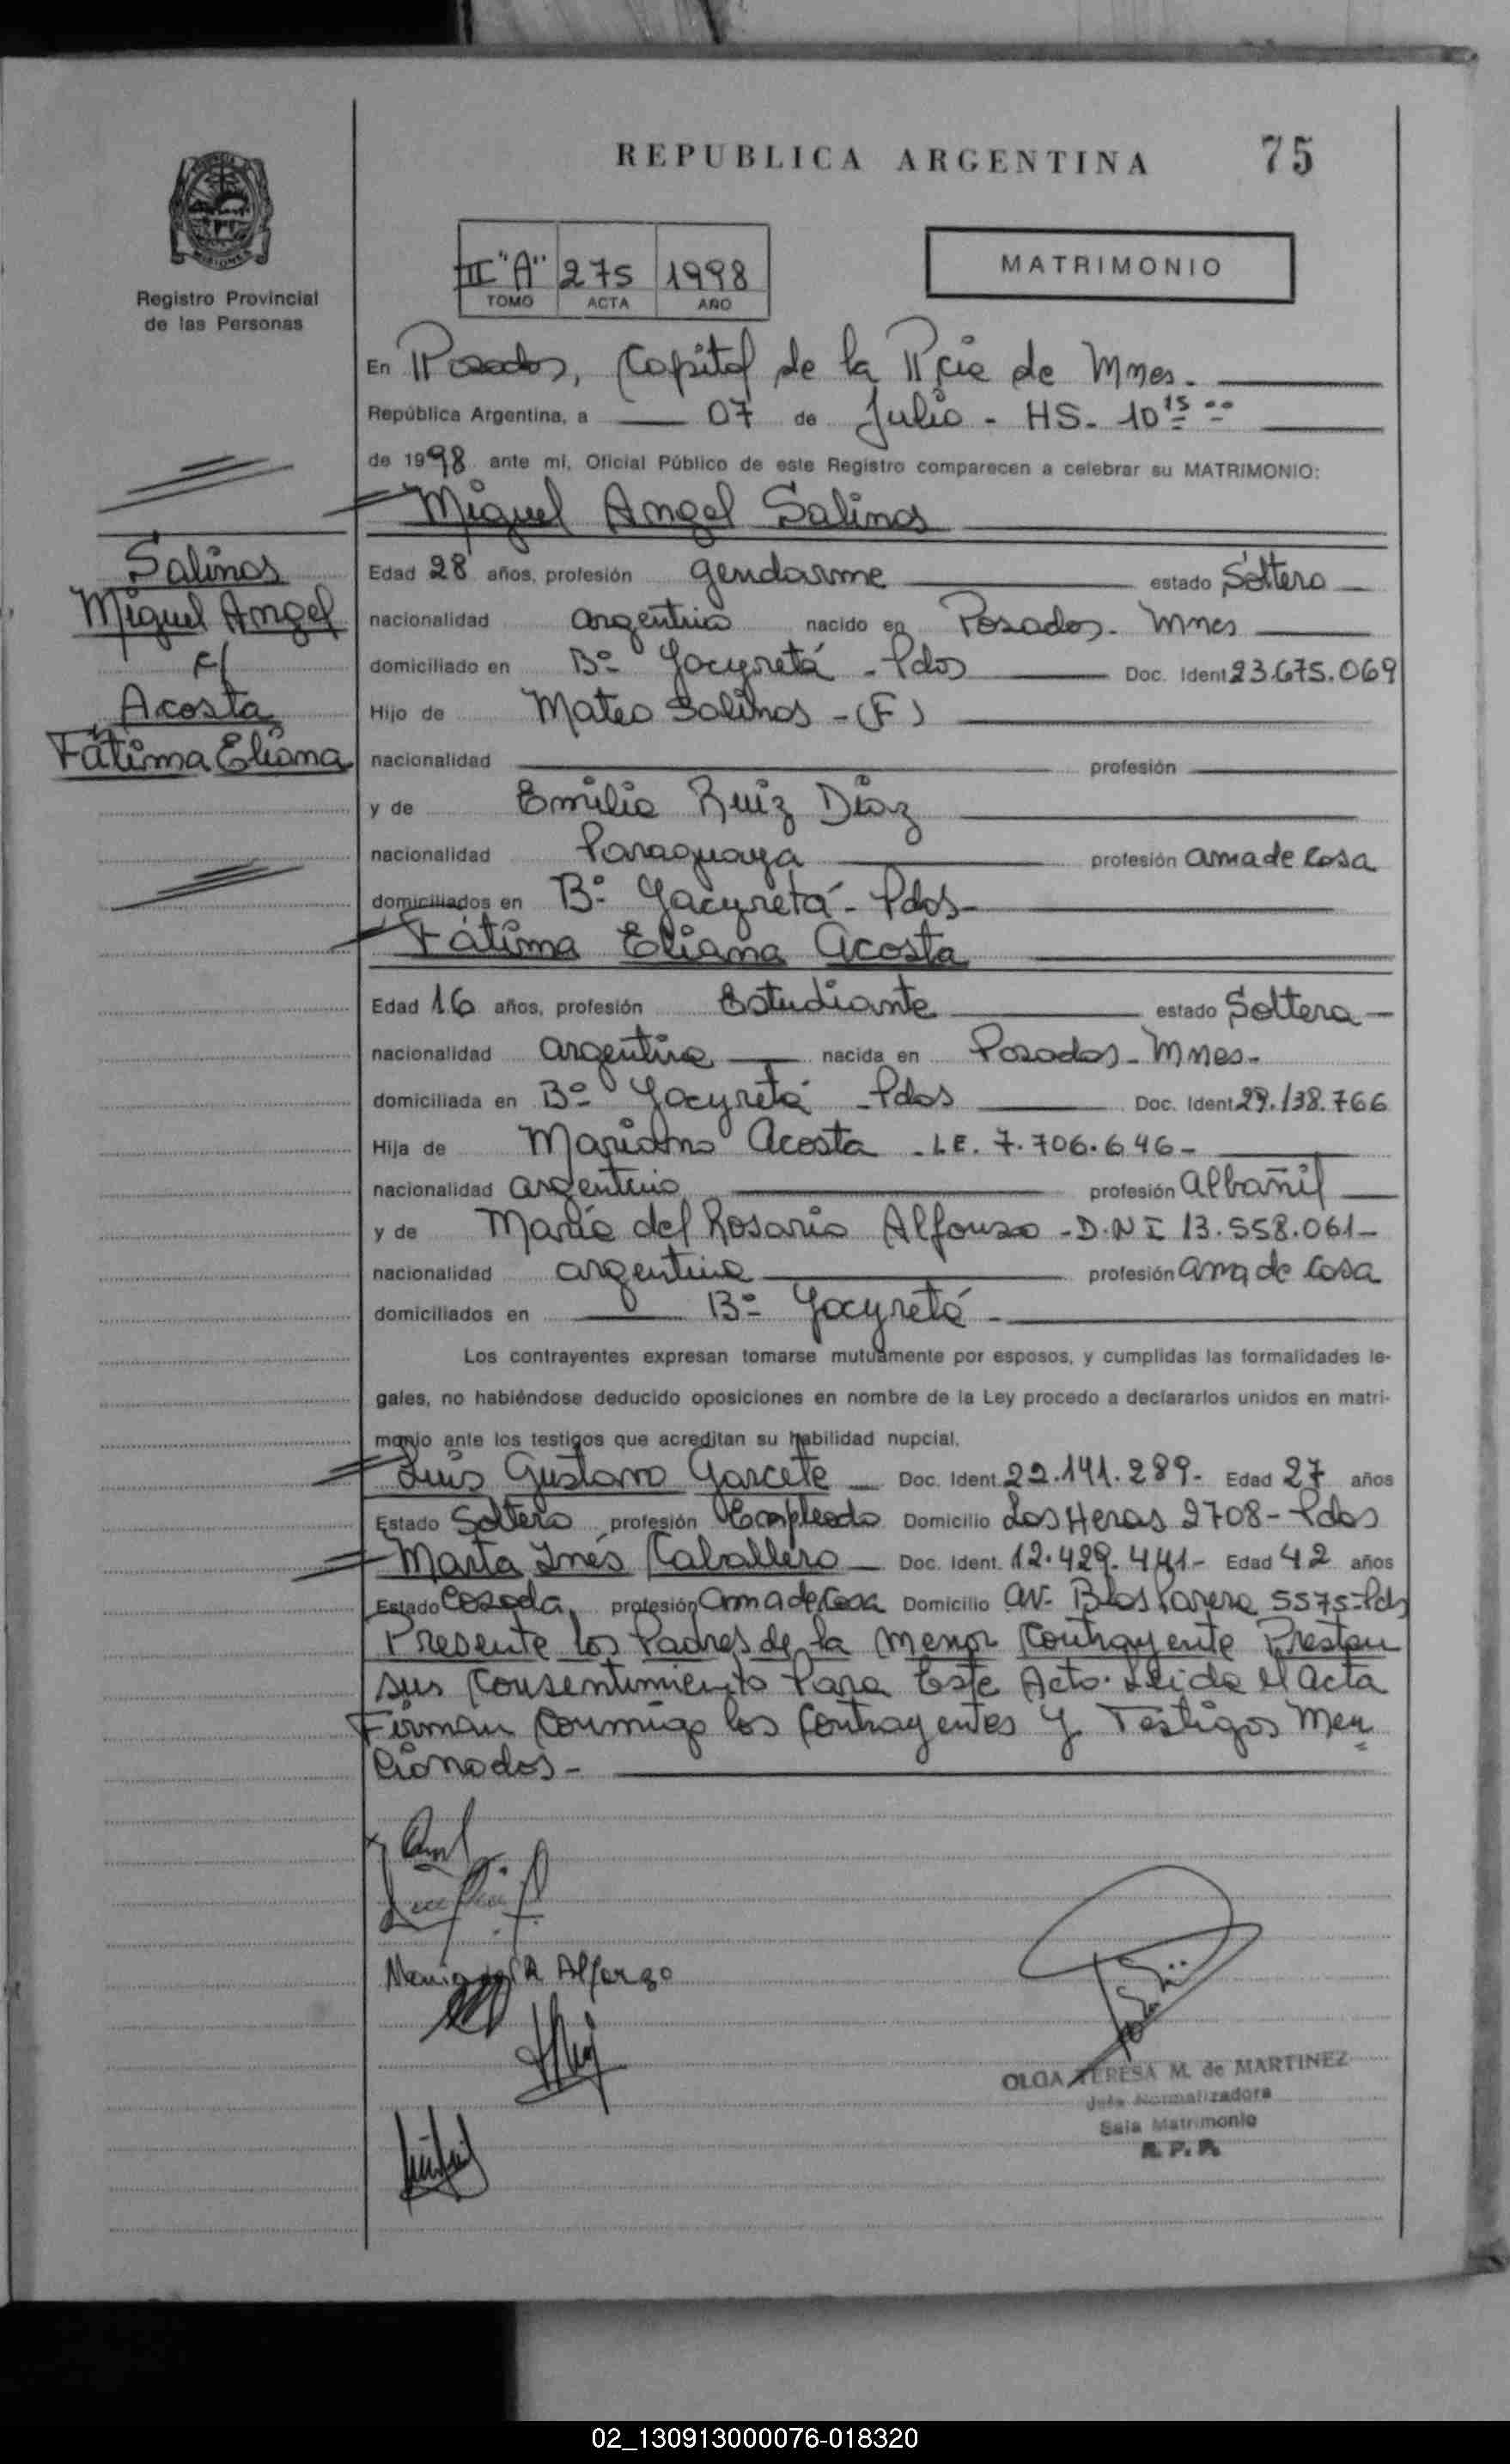 REPUBLICA ARGENTINA 75
MISIONES
Registro Provincial
de las Personas
III "A" 275 1998
TOMO ACTA AÑO
MATRIMONIO
En Posadas, Capital de la Pcia de Mnes.
República Argentina, a 07 de Julio - HS. 10 15
de 1998 ante mí, Oficial Público de este Registro comparecen a celebrar su MATRIMONIO:
Miguel Angel Salinas
Salinas
Miguel Angel
c/
Acosta
Fátima Eliana
Edad 28 años, profesión gendarme estado Soltero
nacionalidad argentino nacido en Posadas - Mnes
domiciliado en Bº Yacyretá - Pdas Doc. Ident 23.675.069
Hijo de Mateo Salinas - (F)
nacionalidad profesión
y de Emilia Ruiz Diaz
nacionalidad Paraguaya profesión ama de casa
domiciliados en Bº Yacyretá - Pdas -
Fátima Eliana Acosta
Edad 16 años, profesión Estudiante estado Soltera
nacionalidad argentina nacida en Posadas - Mnes -
domiciliada en Bº Yacyretá - Pdas Doc. Ident 29.138.766
Hija de Mariano Acosta - LE. 7.706.646 -
nacionalidad argentino profesión albañil
y de María del Rosario Alfonso - D.N I 13.558.061 -
nacionalidad argentina profesión ama de casa
domiciliados en Bº Yacyretá -
Los contrayentes expresan tomarse mutuamente por esposos, y cumplidas las formalidades le-
gales, no habiéndose deducido oposiciones en nombre de la Ley procedo a declararlos unidos en matri-
monio ante los testigos que acreditan su habilidad nupcial.
Luis Gustavo Garcete Doc. Ident. 22.141.289 - Edad 27 años
Estado Soltero profesión Empleado Domicilio Las Heras 2708 - Pdas
Marta Inés Caballero Doc. Ident. 12.429.441 - Edad 42 años
Estado Casada, profesión ama de casa Domicilio av. Blas Parera 5575 - Pds
Presente los Padres de la menor contrayente Prestan
sus consentimiento Para Este Acto. Leida el acta
Firman conmigo los contrayentes y Testigos Men
cionados -
Maria del R Alfonzo
OLGA TERESA M. de MARTINEZ
Jefa Normalizadora
Sala Matrimonio
R. P. P.
02_130913000076-018320